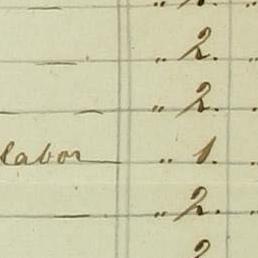 — „ 2. „
— „ 2. „
labor „ 1. „
— „ 2. „